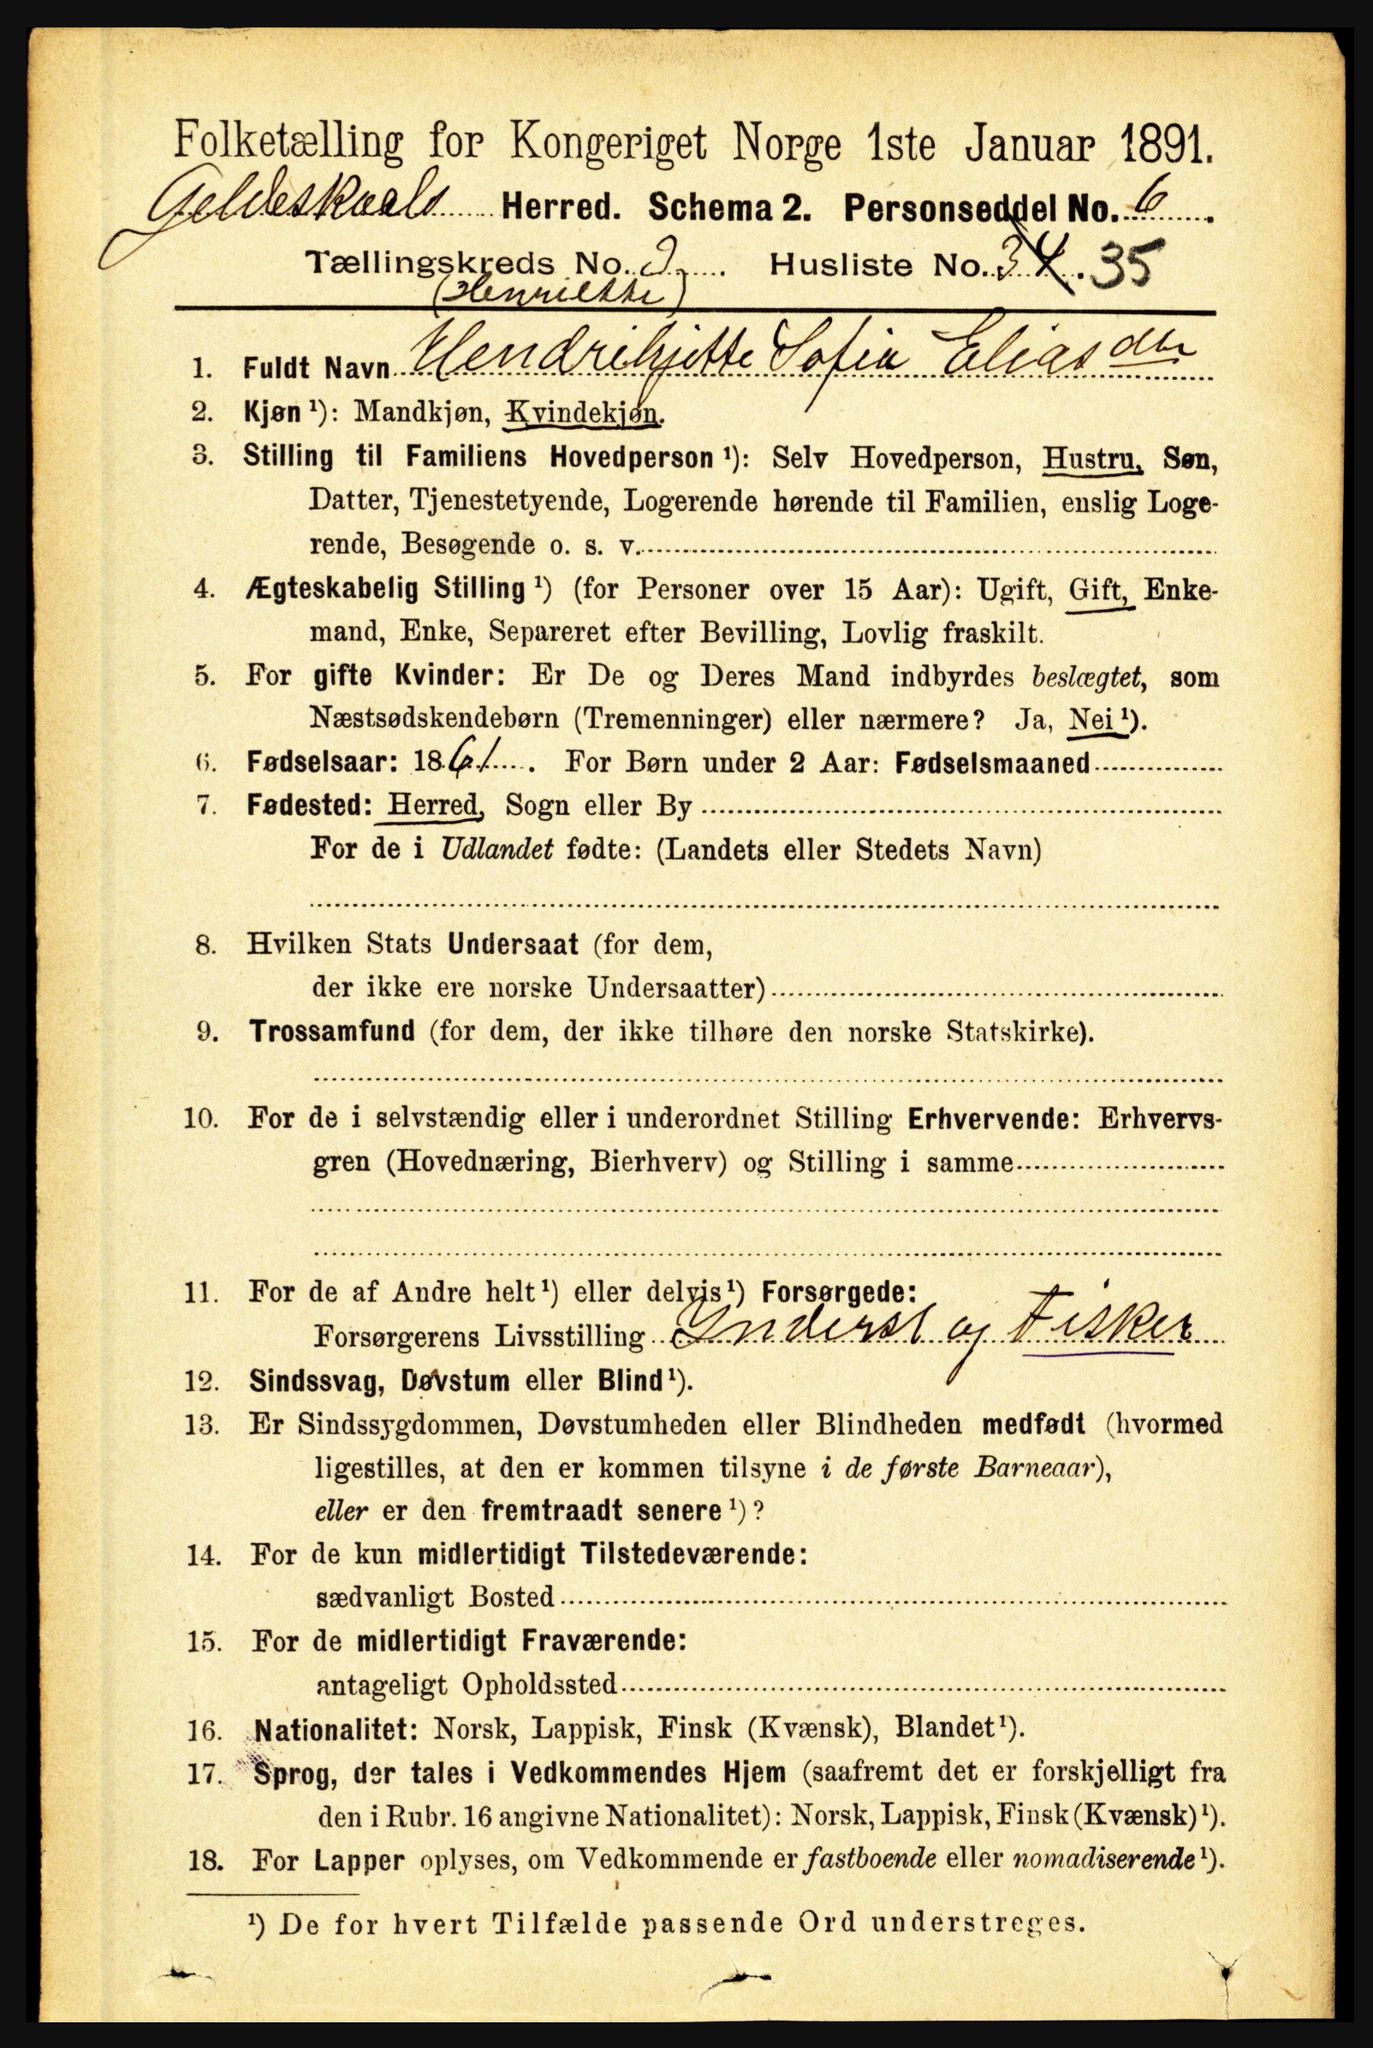 Folketælling for Kongeriget Norge 1ste Januar 1891.
Geldeskaals Herred. Schema 2. Personseddel No. 6.
Tællingskreds No. 2. Husliste No. 34. 35
(Henriette)
1. Fuldt Navn Hendrikjette Sofia Eliasdtr
2. Kjøn ¹): Mandkjøn, Kvindekjøn.
3. Stilling til Familiens Hovedperson ¹): Selv Hovedperson, Hustru, Søn,
Datter, Tjenestetyende, Logerende hørende til Familien, enslig Loge-
rende, Besøgende o. s. v.
4. Ægteskabelig Stilling ¹) (for Personer over 15 Aar): Ugift, Gift, Enke-
mand, Enke, Separeret efter Bevilling, Lovlig fraskilt.
5. For gifte Kvinder: Er De og Deres Mand indbyrdes beslægtet, som
Næstsødskendebørn (Tremenninger) eller nærmere? Ja, Nei ¹).
6. Fødselsaar: 1861. For Børn under 2 Aar: Fødselsmaaned
7. Fødested: Herred, Sogn eller By
For de i Udlandet fødte: (Landets eller Stedets Navn)
8. Hvilken Stats Undersaat (for dem,
der ikke ere norske Undersaatter)
9. Trossamfund (for dem, der ikke tilhøre den norske Statskirke).
10. For de i selvstændig eller i underordnet Stilling Erhvervende: Erhvervs-
gren (Hovednæring, Bierhverv) og Stilling i samme
11. For de af Andre helt ¹) eller delvis ¹) Forsørgede:
Forsørgerens Livsstilling Inderst og Fisker
12. Sindssvag, Døvstum eller Blind ¹).
13. Er Sindssygdommen, Døvstumheden eller Blindheden medfødt (hvormed
ligestilles, at den er kommen tilsyne i de første Barneaar),
eller er den fremtraadt senere ¹)?
14. For de kun midlertidigt Tilstedeværende:
sædvanligt Bosted
15. For de midlertidigt Fraværende:
antageligt Opholdssted
16. Nationalitet: Norsk, Lappisk, Finsk (Kvænsk), Blandet ¹).
17. Sprog, der tales i Vedkommendes Hjem (saafremt det er forskjelligt fra
den i Rubr. 16 angivne Nationalitet): Norsk, Lappisk, Finsk (Kvænsk) ¹).
18. For Lapper oplyses, om Vedkommende er fastboende eller nomadiserende ¹).
¹) De for hvert Tilfælde passende Ord understreges.